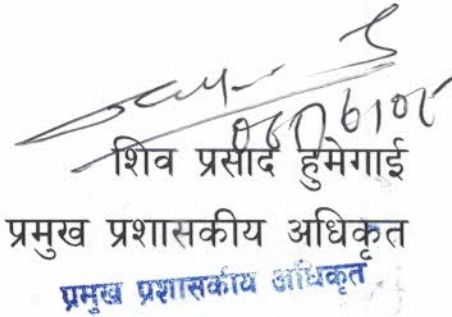 शिव प्रसाद हुमेगाई
प्रमुख प्रशासकीय अधिकृत
प्रमुख प्रशासकीय अधिकृत